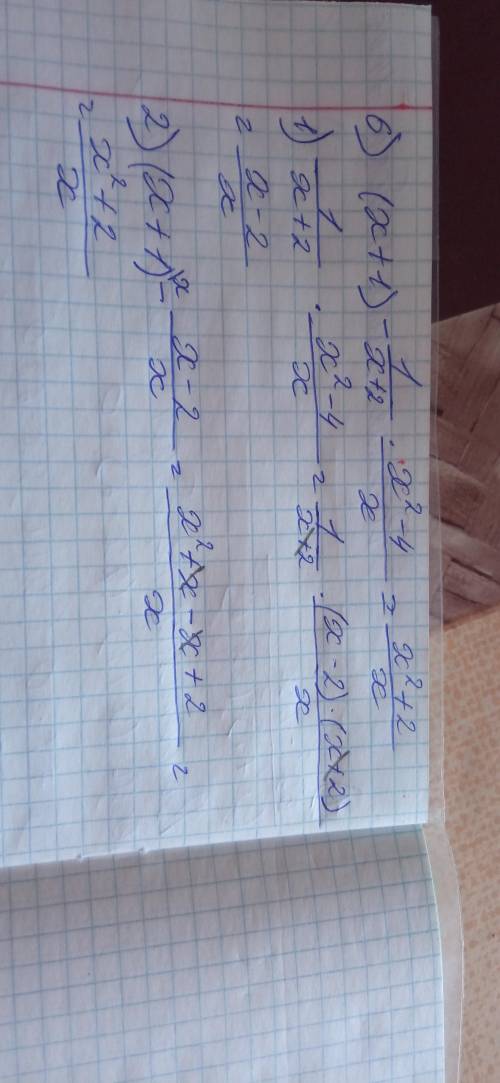 б) (x+1) - 1/(x+2) · (x²-4)/x = (x²+2)/x
1) 1/(x+2) · (x²-4)/x = 1/(x+2) · ((x-2)·(x+2))/x
= (x-2)/x
2) (x+1)^x - (x-2)/x = (x²+x-x+2)/x =
= (x²+2)/x